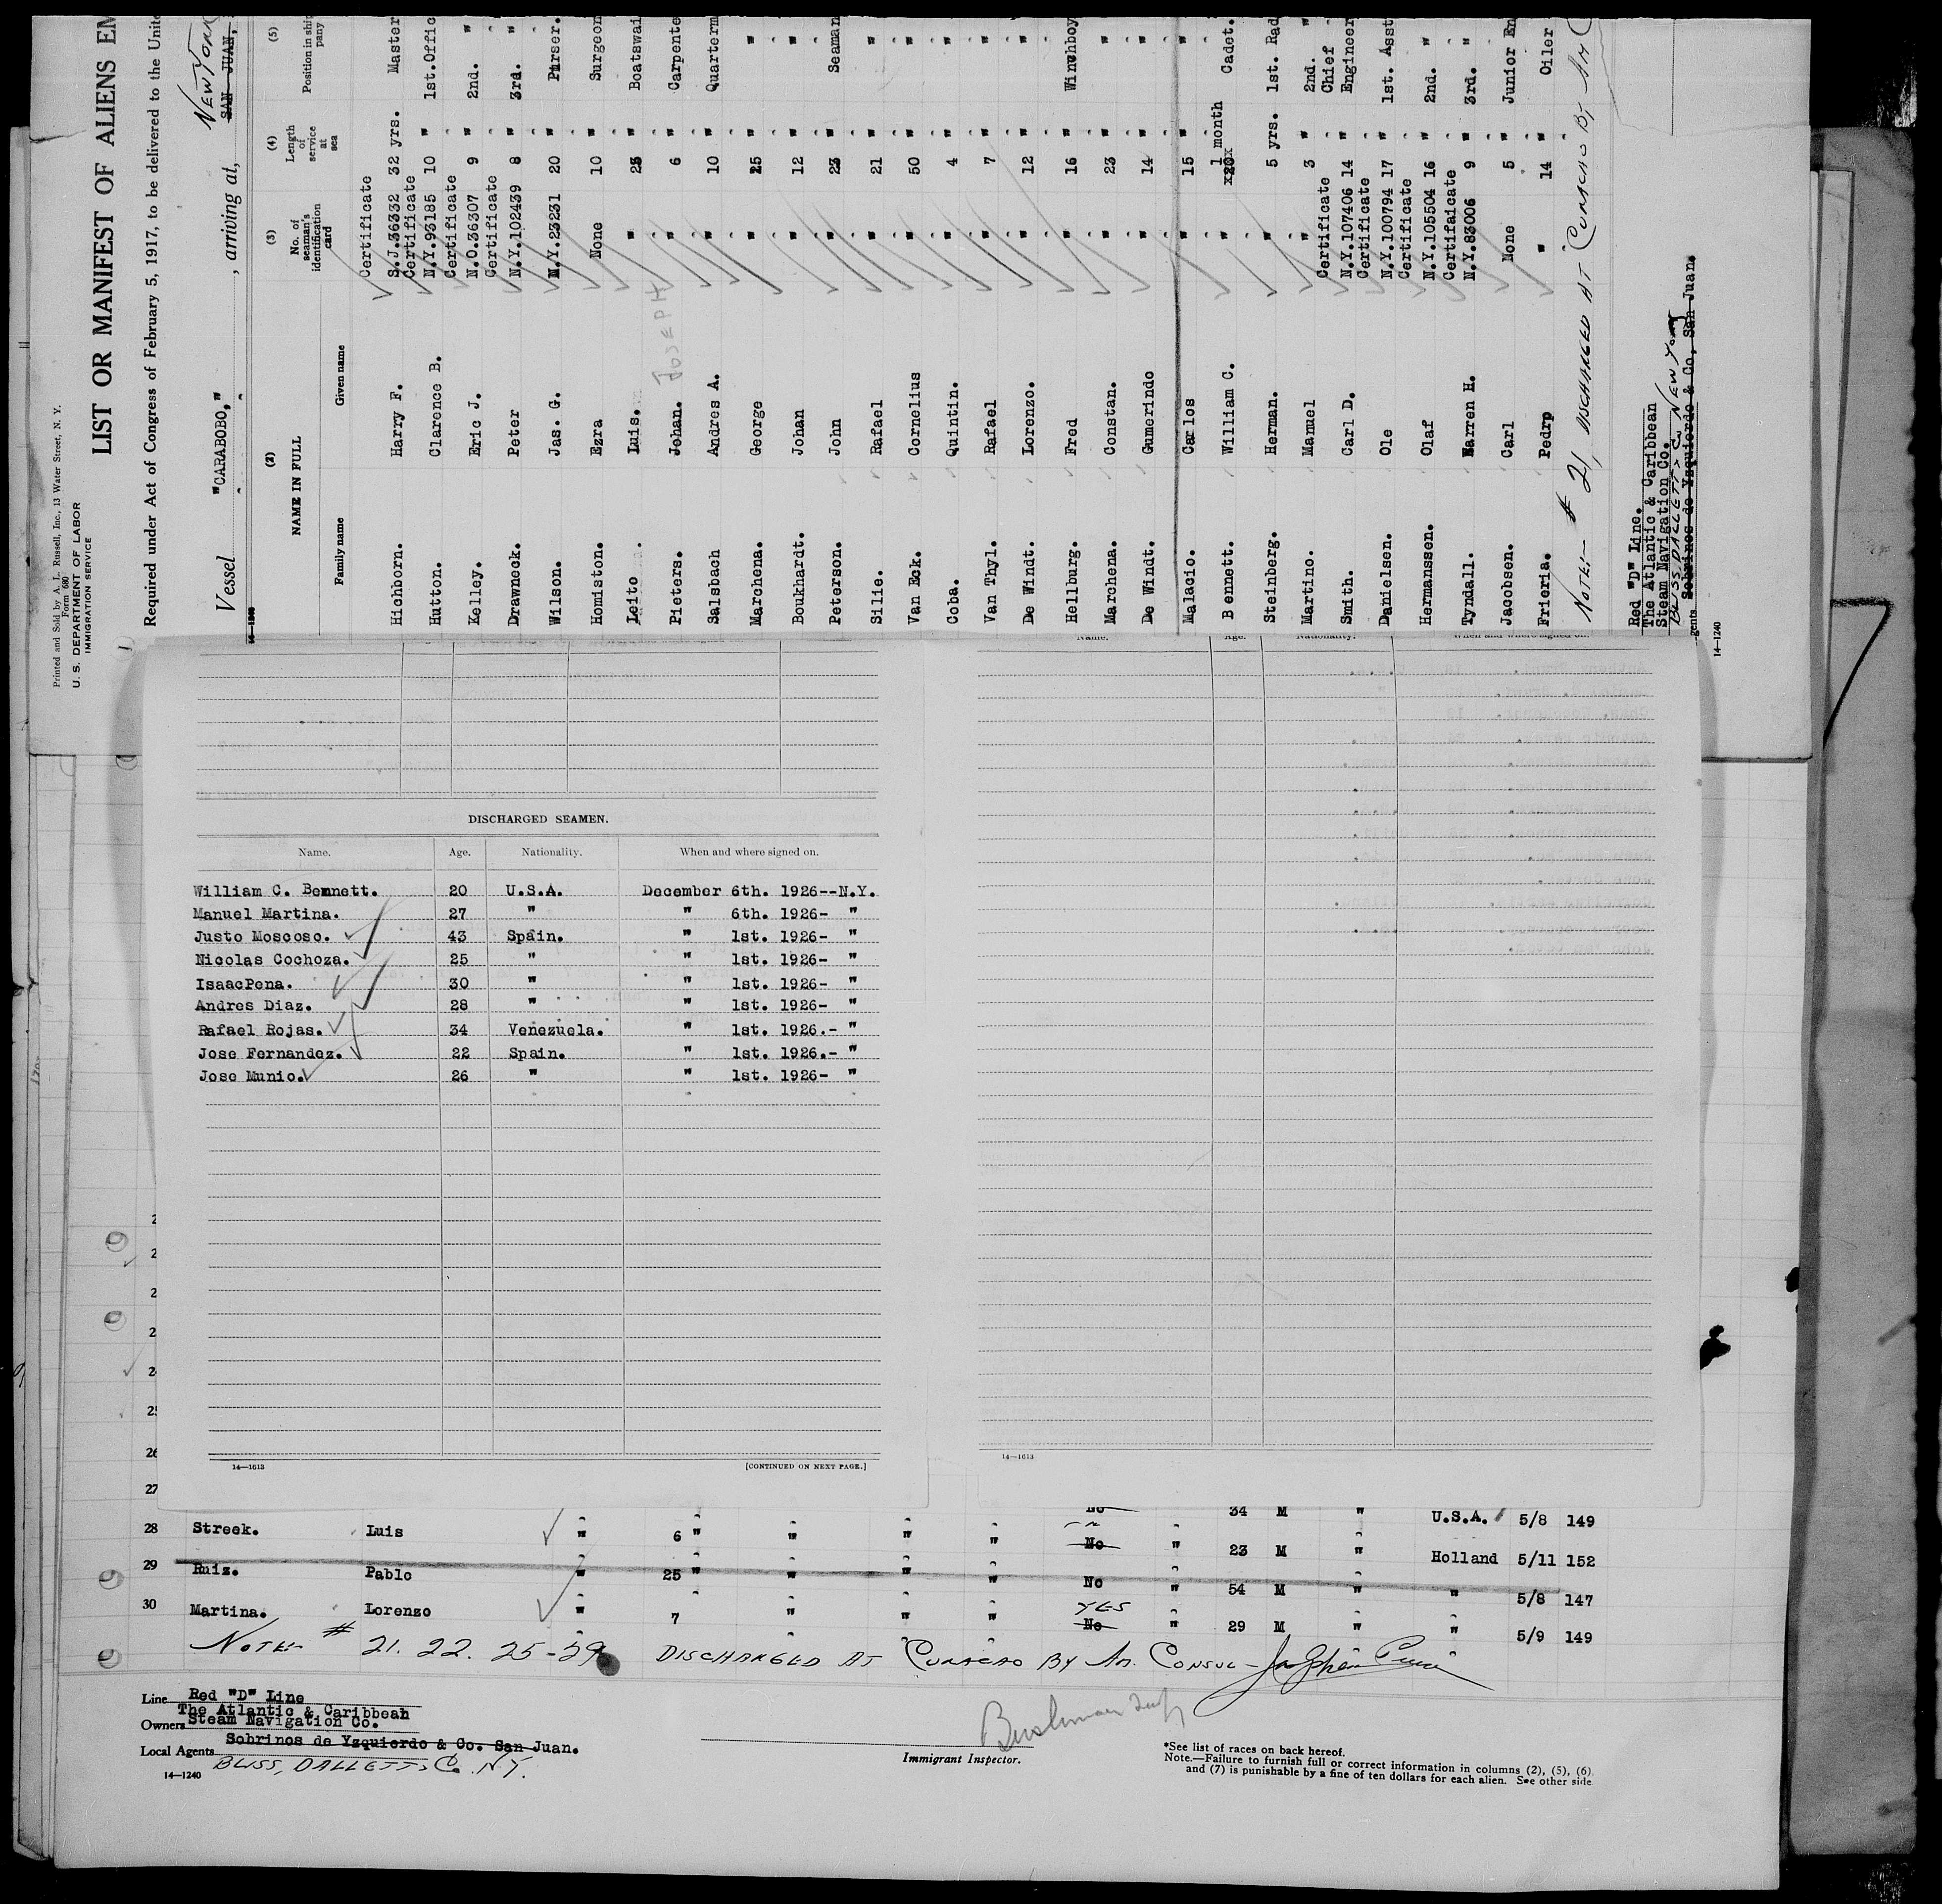 Printed and Sold by A. L. Russell, Inc., 13 Water Street, N. Y.
Form 680
U. S. DEPARTMENT OF LABOR
IMMIGRATION SERVICE
LIST OR MANIFEST OF ALIENS EM
Required under Act of Congress of February 5, 1917, to be delivered to the Unite
NEW YORK
Vessel "CARABOBO," , arriving at, SAN JUAN,
(2) (3) (4) (5)
NAME IN FULL No. of seaman's identification card Length of service at sea Position in ship
Family name Given name
Hichborn. Harry F. Certificate S.J.36332 32 yrs. Master
Hutton. Clarence B. Certificate N.Y.93185 10 " 1st.Offic
Kelley. Eric J. Certificate N.O.36307 9 " 2nd. "
Drawneck. Peter Certificate N.Y.102439 8 " 3rd. "
Wilson. Jas. G. N.Y.23231 20 " Purser.
Homiston. Ezra None 10 " Surgeon
JOSEPH
Leito Luis. " 25 " Boatswai
Pieters. Johan. " 6 " Carpente
Salsbach Andres A. " 10 " Quarterm
Marchena. George " 25 " "
Boukhardt. Johan " 12 " "
Peterson. John " 23 " Seaman
Silie. Rafael " 21 " "
Van Eck. Cornelius " 50 " "
Coba. Quintin. " 4 " "
Van Thyl. Rafael " 7 " "
De Windt. Lorenzo. " 12 " "
Hellburg. Fred " 16 " Winchboy
Marchena. Constan. " 23 " "
De Windt. Gumerindo " 14 " "
Malacio. Carlos " 15 " "
Bennett. William C. " 1 month Cadet.
Steinberg. Herman. " 5 yrs. 1st. Rad
Martino. Manuel " 3 " 2nd. "
Smith. Carl D. Certificate N.Y.107406 14 " Chief Engineer
Danielsen. Ole Certificate N.Y.100794 17 " 1st. Asst
Hermanssen. Olaf Certificate N.Y.105504 16 " 2nd. "
Tyndall. Warren H. Certifaicate N.Y.83006 9 " 3rd. "
Jacobsen. Carl None 5 " Junior En
Frieria. Pedrp " 14 " Oiler
NOTE:- # 21, DISCHARGED AT CURACAO BY AM
Red "D" Line.
The Atlantic & Caribbean
Steam Navigation Co.
BLISS, DALLETT & Co NEW YORK
gents Sobrinos de Yzquierdo & Co, San Juan.
14—1240
Name. Age. Nationality. When and where signed on.
DISCHARGED SEAMEN.
Name. Age. Nationality. When and where signed on.
William C. Bennett. 20 U.S.A. December 6th. 1926--N.Y.
Manuel Martina. 27 " " 6th. 1926- "
Justo Moscoso. 43 Spain. " 1st. 1926- "
Nicolas Cochoza. 25 " " 1st. 1926- "
IsaacPena. 30 " " 1st. 1926- "
Andres Diaz. 28 " " 1st. 1926- "
Rafael Rojas. 34 Venezuela. " 1st. 1926.- "
Jose Fernandez. 22 Spain. " 1st. 1926.- "
Jose Munio. 26 " " 1st. 1926- "
14—1613 [CONTINUED ON NEXT PAGE.]
14—1613
26
27
No 34 M " U.S.A. 5/8 149
28 Streek. Luis " 6 " " " " No " 23 M " Holland 5/11 152
29 Ruiz. Pablo " 25 " " " " No " 54 M " " 5/8 147
YES
30 Martina. Lorenzo " 7 " " " No " 29 M " " 5/9 149
NOTE:- # 21. 22. 25-29 DISCHARGED AT CURACAO BY AM. CONSUL-
Line Red "D" Line
The Atlantic & Caribbean
Owners Steam Navigation Co.
Local Agents Sobrinos de Yzquierdo & Co. San Juan.
BLISS, DALLETT & Co. N.Y.
14—1240
Immigrant Inspector.
*See list of races on back hereof.
Note.—Failure to furnish full or correct information in columns (2), (5), (6),
and (7) is punishable by a fine of ten dollars for each alien. See other side.